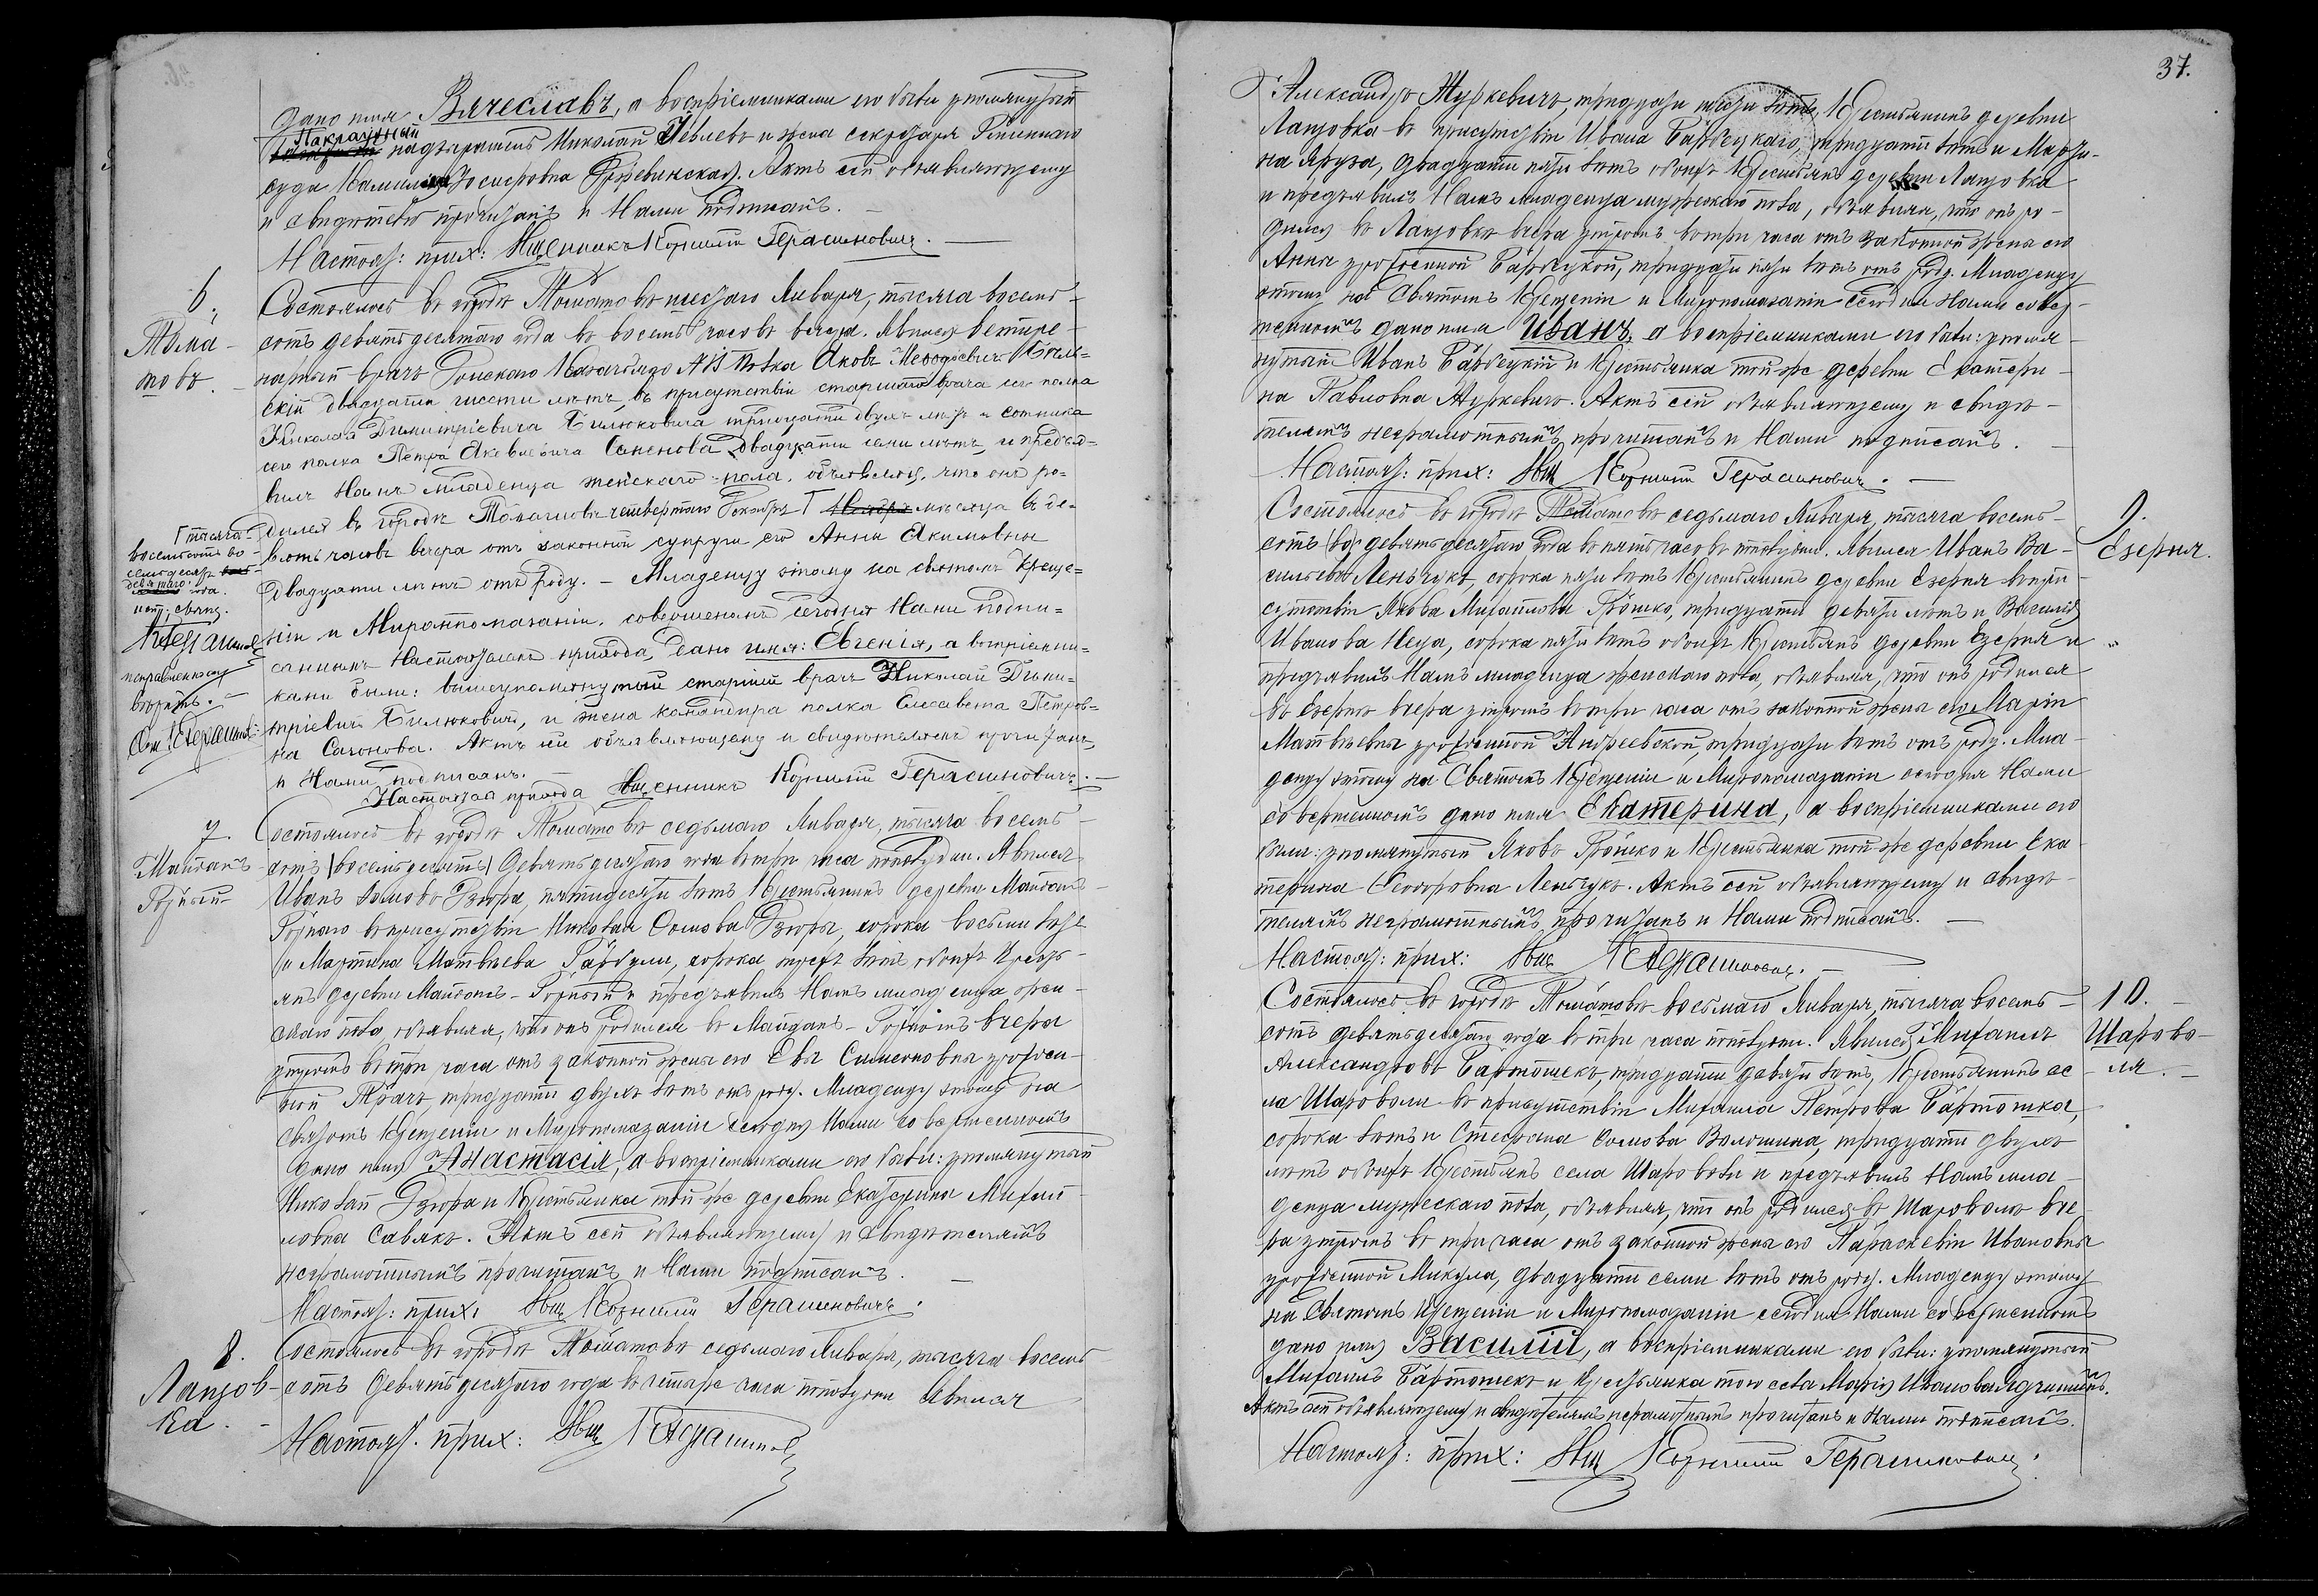 дано имя Вячеславъ, а воспріемниками его были упомянутый
Пакгаузный
надзиратель Николай Іевлевъ и жена секретаря
суда Камилія Іосифовна. Актъ сей объявляющему
и свидѣтелямъ прочитанъ и Нами подписанъ. —
Настоят: прих: Священникъ Корнилій Герасимовичъ. —
6.
Тома-
шовъ.
Состоялось въ городѣ Томашовѣ шестаго Января, тысяча восемь-
сотъ девятьдесятаго года въ восемь часовъ вечера. Явился ветере-
нарный врачъ Донскаго Казачьяго № 13 Полка Яковъ Меѳодіевичъ
двадцати шести лѣтъ, въ присутствіи старшаго врача сего полка
Николая Димитріевича Билюковича тридцати двухъ лѣтъ и сотника
сего полка Петра Яковлевича Семенова двадцати семи лѣтъ, и предъя-
вилъ Намъ младенца женскаго пола, объявляя, что онъ ро-
дился въ городѣ Томашовѣ четвертаго Декабря Г Ноября мѣсяца въ де-
вять часовъ вечера отъ законной супруги его Анны Якимовны
двадцати лѣтъ отъ роду. — Младенцу этому на святомъ Креще-
ніи и Миропомазаніи, совершенномъ сегодня Нами подпи-
саннымъ Настоятелемъ прихода, дано имя: Евгенія, а воспріемни-
ками были: вышеупомянутый старшій врачъ Николай Дими-
тріевичъ Билюковичъ, и жена командира полка Елисавета Петров-
на Сазонова. Актъ сей объявляющему и свидѣтелямъ прочитанъ,
и Нами подписанъ. —
Настоятель прихода Священникъ Корнилій Герасимовичъ. —
Г тысяча
восемьсотъ во-
семьдесятъ
девятаго года.
Наст; свящ.
К Герасимов
исправленному
вѣрить. —
Свящ. К Герасимов:
7.
Майданъ
Гурный
Состоялось въ городѣ Томашовѣ седьмаго Января, тысяча восемь-
сотъ (восемьдесятъ) девятьдесятаго года въ три часа пополудни. Явился
Иванъ Ѳомовъ Дзюра, пятидесяти лѣтъ Крестьянинъ деревни Майданъ-
Гурнаго въ присутствіи Николая Ѳомова Дзюры, сорока восьми лѣтъ
и Мартина Матвѣева Гарбули, сорока трехъ лѣтъ обоихъ Кресть-
янъ деревни Майданъ-Гурный и предъявилъ Намъ младенца жен-
скаго пола, объявляя, что онъ родился въ Майданѣ-Гурномъ вчера
утромъ въ три часа отъ законной жены его Евы Симеоновны урожден-
ной Ткачъ, тридцати двухъ лѣтъ отъ роду. Младенцу этому на
Святомъ Крещеніи и Миропомазаніи сегодня Нами совершенномъ
дано имя Анастасія, а воспріемниками его были: упомянутый
Николай Дзюра и Крестьянка той-же деревни Екатерина Михай-
ловна Савякъ. Актъ сей объявляющему и свидѣтелямъ
неграмотнымъ прочитанъ и Нами подписанъ. —
Настоят: прих: Свящ Корнилій Герасимовичъ.
8.
Лапзов-
ка. -
Состоялось въ городѣ Томашовѣ седьмаго Января, тысяча восемь
сотъ девятьдесятаго года въ четыре часа пополудни Явился
Настоят. прих: Свящ К Герасимов
37.
Александръ Журкевичъ, тридцати лѣтъ, Крестьянинъ деревни
Лапзовка въ присутствіи Ивана Барбецкаго, тридцати лѣтъ и Марти-
на двадцати пяти лѣтъ обоихъ Крестьянъ деревни Лапзовка
и предъявилъ Намъ младенца мужескаго пола, объявляя, что онъ ро-
дился въ Лапзовкѣ вчера утромъ въ три часа отъ законной жены его
Анны урожденной Барбецкой, тридцати пяти лѣтъ отъ роду. Младенцу
этому на Святомъ Крещеніи и Миропомазаніи сегодня Нами совер-
шенномъ дано имя Иванъ, а воспріемниками его были: упомя-
нутый Иванъ Барбецкій и Крестьянка той-же деревни Екатери-
на Павловна Журкевичъ. Актъ сей объявляющему и свидѣ-
телямъ неграмотнымъ прочитанъ и Нами подписанъ. —
Настоят: прих: Свящ Корнилій Герасимовичъ. —
9.
Езерня.
Состоялось въ городѣ Томашовѣ седьмаго Января, тысяча восемь-
сотъ (вос девятьдесятаго года въ пять часовъ пополудни. Явился Иванъ Ва-
сильевъ Леньчукъ, сорока пяти лѣтъ Крестьянинъ деревни Езерня въ при-
сутствіи Якова Михайлова Грошко, тридцати девяти лѣтъ и Василія
Иванова Неца, сорока пяти лѣтъ обоихъ Крестьянъ деревни Езерня и
предъявилъ Намъ младенца женскаго пола, объявляя, что онъ родился
въ Езернѣ вчера утромъ въ три часа отъ законной жены его Маріи
Матвѣевны урожденной Андреевской, тридцати лѣтъ отъ роду. Мла-
денцу этому на Святомъ Крещеніи и Миропомазаніи сегодня Нами
совершенномъ дано имя Екатерина, а воспріемниками его
были: упомянутый Яковъ Грошко и Крестьянка той-же деревни Ека-
терина Ѳеодоровна Леньчукъ. Актъ сей объявляющему и свидѣ-
телямъ неграмотнымъ прочитанъ и Нами подписанъ. —
Настоят: прих: Свящ К Герасимович. —
10. -
Шарово-
ля. —
Состоялось въ городѣ Томашовѣ восьмаго Января, тысяча восемь-
сотъ девятьдесятаго года въ три часа пополудни. Явился Михаилъ
Александровъ Бартошекъ, тридцати девяти лѣтъ, Крестьянинъ се-
ла Шароволи въ присутствіи Михаила Петрова Бартошка,
сорока лѣтъ и Стефана Ѳомова Волошина, тридцати двухъ
лѣтъ обоихъ Крестьянъ села Шароволи и предъявилъ Намъ мла-
денца мужескаго пола, объявляя, что онъ родился въ Шароволѣ вче-
ра утромъ въ три часа отъ законной жены его Параскевіи Ивановны
урожденной Микула, двадцати семи лѣтъ отъ роду. Младенцу этому
на Святомъ Крещеніи и Миропомазаніи сегодня Нами совершенномъ
дано имя Василій, а воспріемниками его были: упомянутый
Михаилъ Бартошекъ и Крестьянка того села Марія Иванова.
Актъ сей объявляющему и свидѣтелямъ неграмотнымъ прочитанъ и Нами подписанъ.
Настоят: прих: Свящ Корнилій Герасимович.